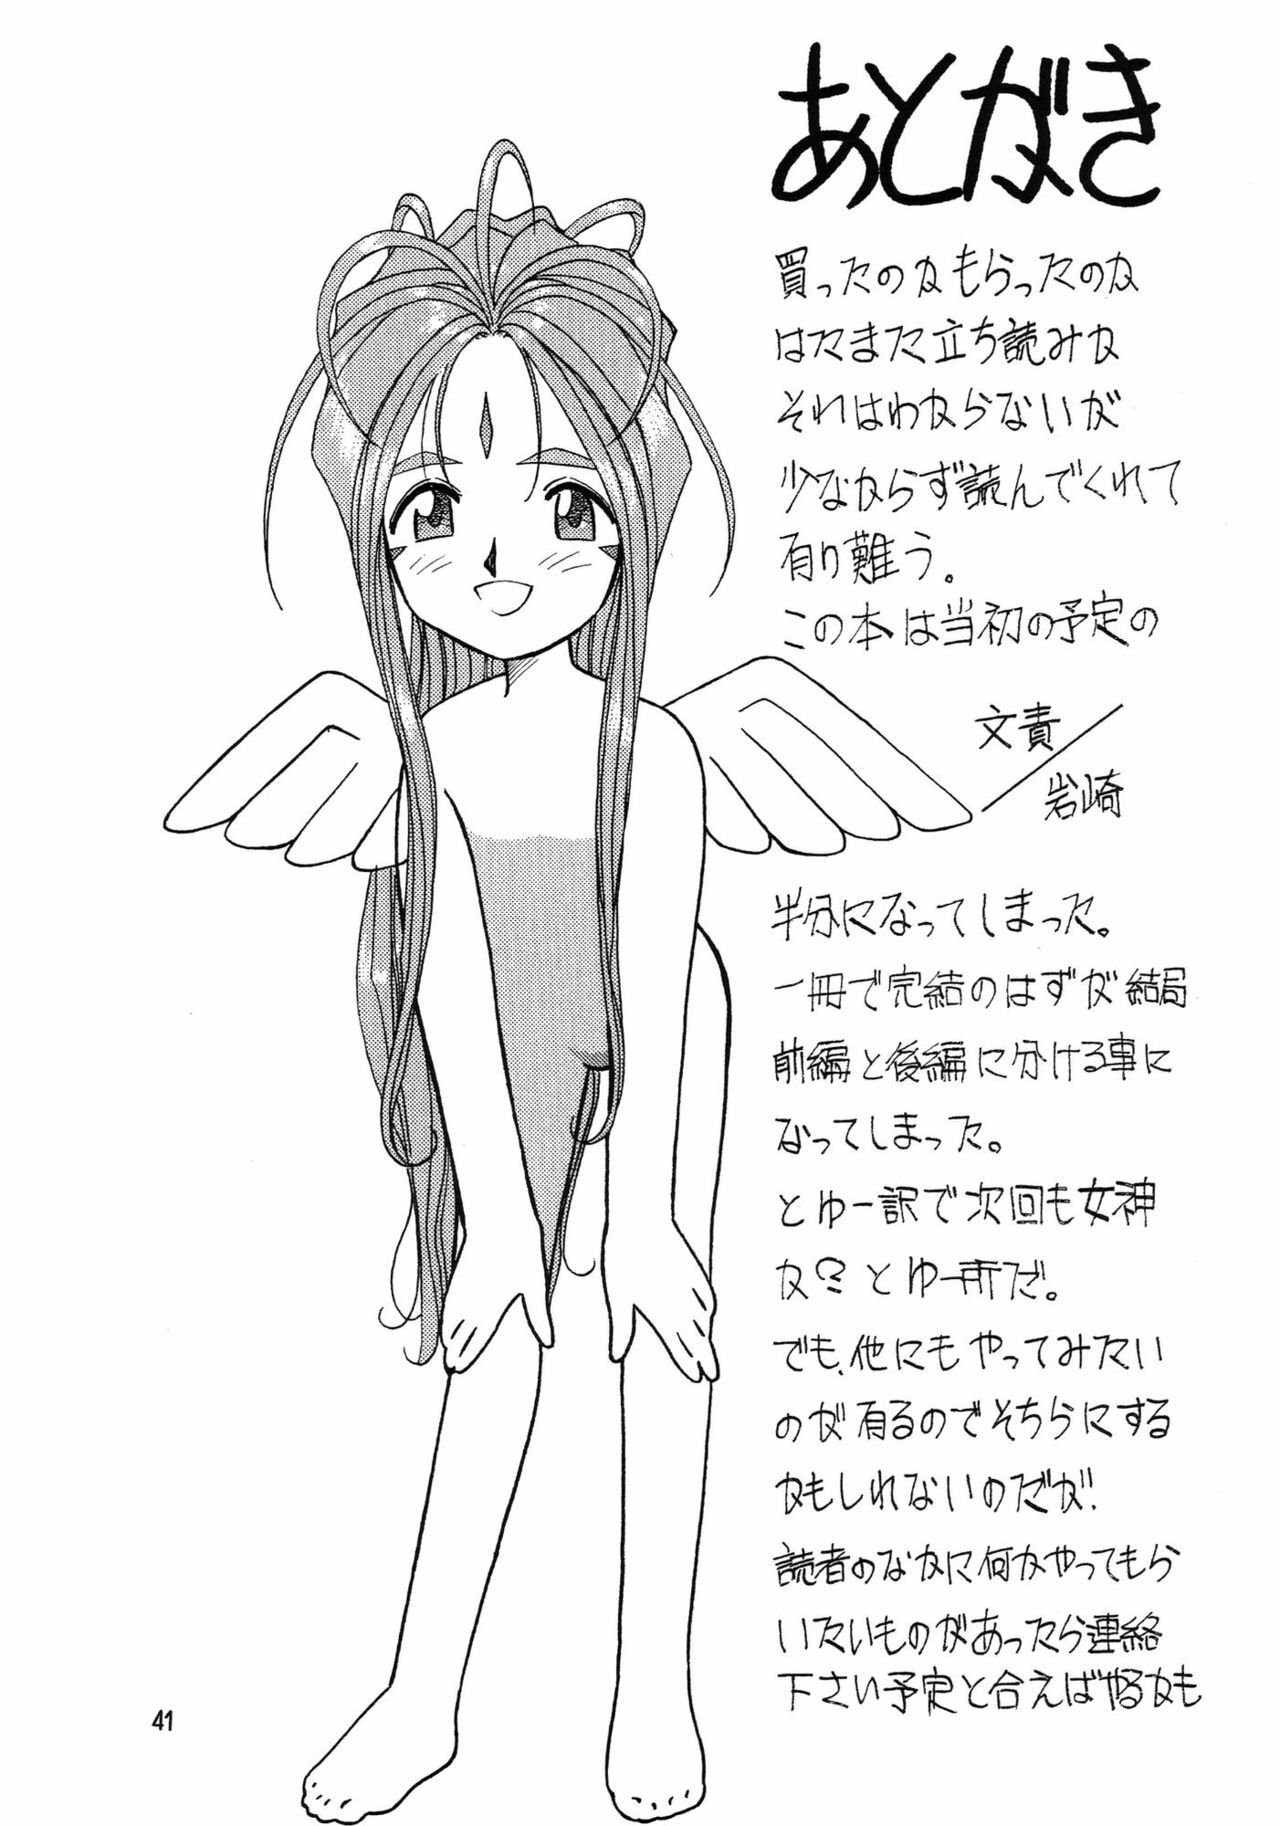 あとがき
買ったのかもらったのか
はたまた立ち読みか
それはわからないが
少なからず読んでくれて
有り難う。
この本は当初の予定の
文責／
岩崎
半分になってしまった。
一冊で完結のはずが結局
前編と後編に分ける事に
なってしまった。
とゆー訳で次回も女神
か？とゆー所だ。
でも、他にもやってみたい
のが有るのでそちらにする
かもしれないのだが！
読者のなかに何かやってもら
いたいものがあったら連絡
下さい予定と合えばやるかも
41